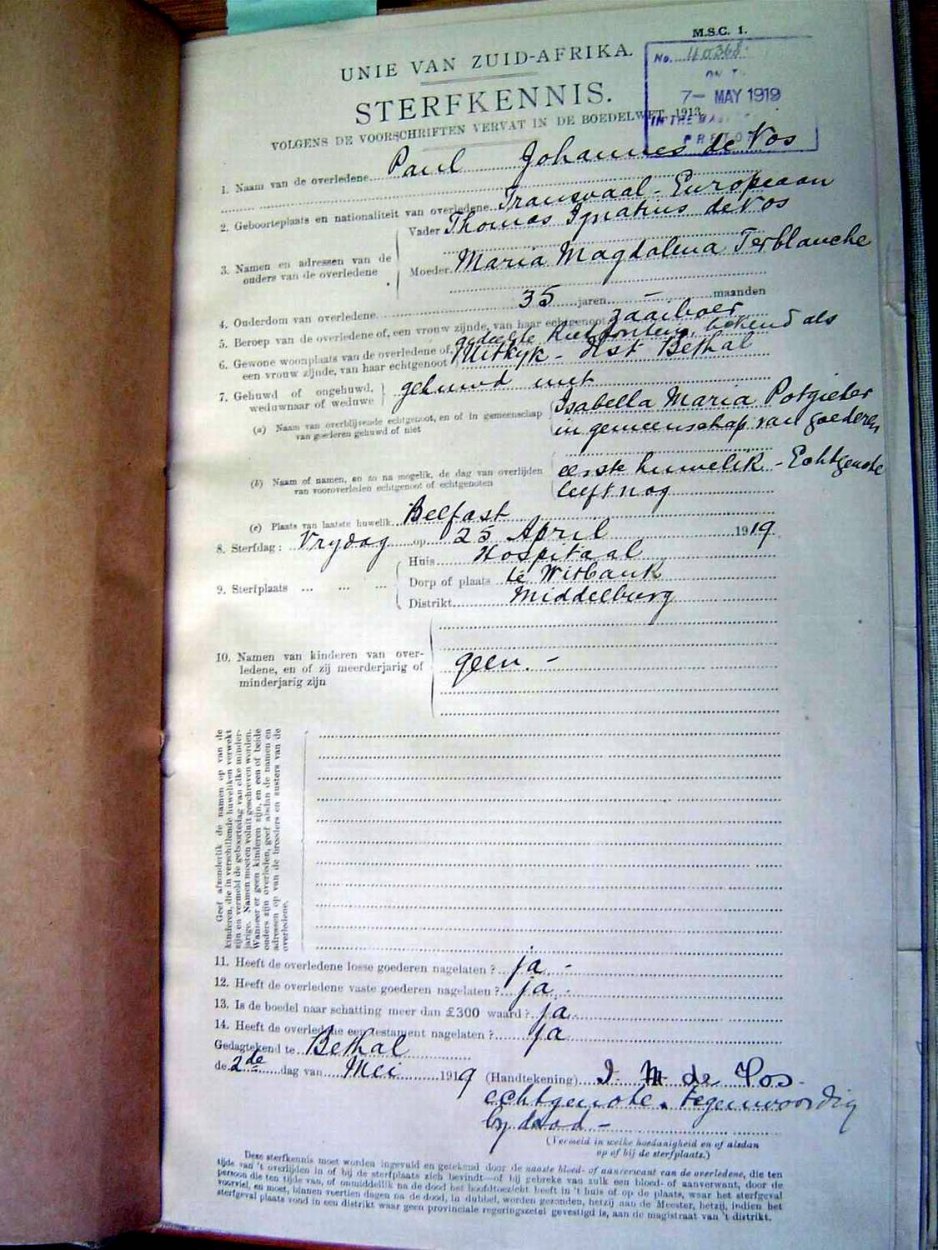 M.S.C. 1.
UNIE VAN ZUID-AFRIKA.
No. 40368
7- MAY 1919
IN THE
STERFKENNIS.
VOLGENS DE VOORSCHRIFTEN VERVAT IN DE BOEDELWET, 1913.
1. Naam van de overledene Paul Johannes de Vos
2. Geboorteplaats en nationaliteit van overledene Transvaal - Europeaan
3. Namen en adressen van de ouders van de overledene
Vader Thomas Ignatius de Vos
Moeder Maria Magdalena Terblanche
4. Ouderdom van overledene 35 jaren - maanden
5. Beroep van de overledene of, een vrouw zijnde, van haar echtgenoot zaaiboer
6. Gewone woonplaats van de overledene of, gedeelte Rietfontein, bekend als
een vrouw zijnde, van haar echtgenoot Uitkyk - Dist Bethal
7. Gehuwd of ongehuwd, weduwnaar of weduwe gehuwd met
(a) Naam van overblijvende echtgenoot, en of in gemeenschap Isabella Maria Potgieter
van goederen gehuwd of niet in gemeenschap van goederen
(b) Naam of namen, en zo na mogelik, de dag van overlijden eerste huwelik - Echtgenote
van vooroverleden echtgenoot of echtgenoten leeft nog
(c) Plaats van laatste huwelik Belfast
8. Sterfdag: Vrydag op 25 April 1919
9. Sterfplaats ... ... ...
Huis Hospitaal
Dorp of plaats te Witbank
Distrikt Middelburg
10. Namen van kinderen van over-
ledene, en of zij meerderjarig of geen. -
minderjarig zijn
Geef afzonderlik de namen op van de
kinderen, die in verschillende huweliken verwekt
zijn en vermeld de geboortedag van elke minder-
jarige. Namen moeten voluit geschreven worden.
Wanneer er geen kinderen zijn, en een of beide
ouders zijn overleden, geef alsdan de namen en
adressen op van de broeders en zusters van de
overledene.
11. Heeft de overledene losse goederen nagelaten? ja -
12. Heeft de overledene vaste goederen nagelaten? ja -
13. Is de boedel naar schatting meer dan £300 waard? ja
14. Heeft de overledene een testament nagelaten? ja
Gedagtekend te Bethal
de 2de dag van Mei 1919 (Handtekening) I. M. de Vos
echtgenote. tegenwoordig
by dood -
(Vermeld in welke hoedanigheid en of alsdan
op of bij de sterfplaats.)
Deze sterfkennis moet worden ingevuld en getekend door de naaste bloed- of aanverwant van de overledene, die ten
tijde van 't overlijden in of bij de sterfplaats zich bevindt—of bij gebreke van zulk een bloed- of aanverwant, door de
persoon die ten tijde van, of onmiddellik na de dood het hoofdtoezicht heeft in 't huis of op de plaats, waar het sterfgeval
voorviel, en moet, binnen veertien dagen na de dood, in dubbel, worden gezonden, hetzij aan de Meester, hetzij, indien het
sterfgeval plaats vond in een distrikt waar geen provinciale regeringszetel gevestigd is, aan de magistraat van 't distrikt.